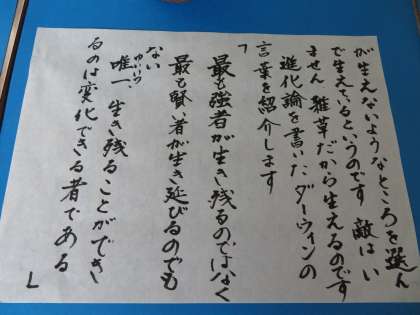 が生えないようなところを選ん
で生えているというのです 敵はい
ません 雑草だから生えるのです
進化論を書いたダーウィンの
言葉を紹介します
「最も強者が生き残るのではなく
最も賢い者が生き延びるのでも
ない
唯一、生き残ることができ
ゆいいつ
るのは変化できる者である
」